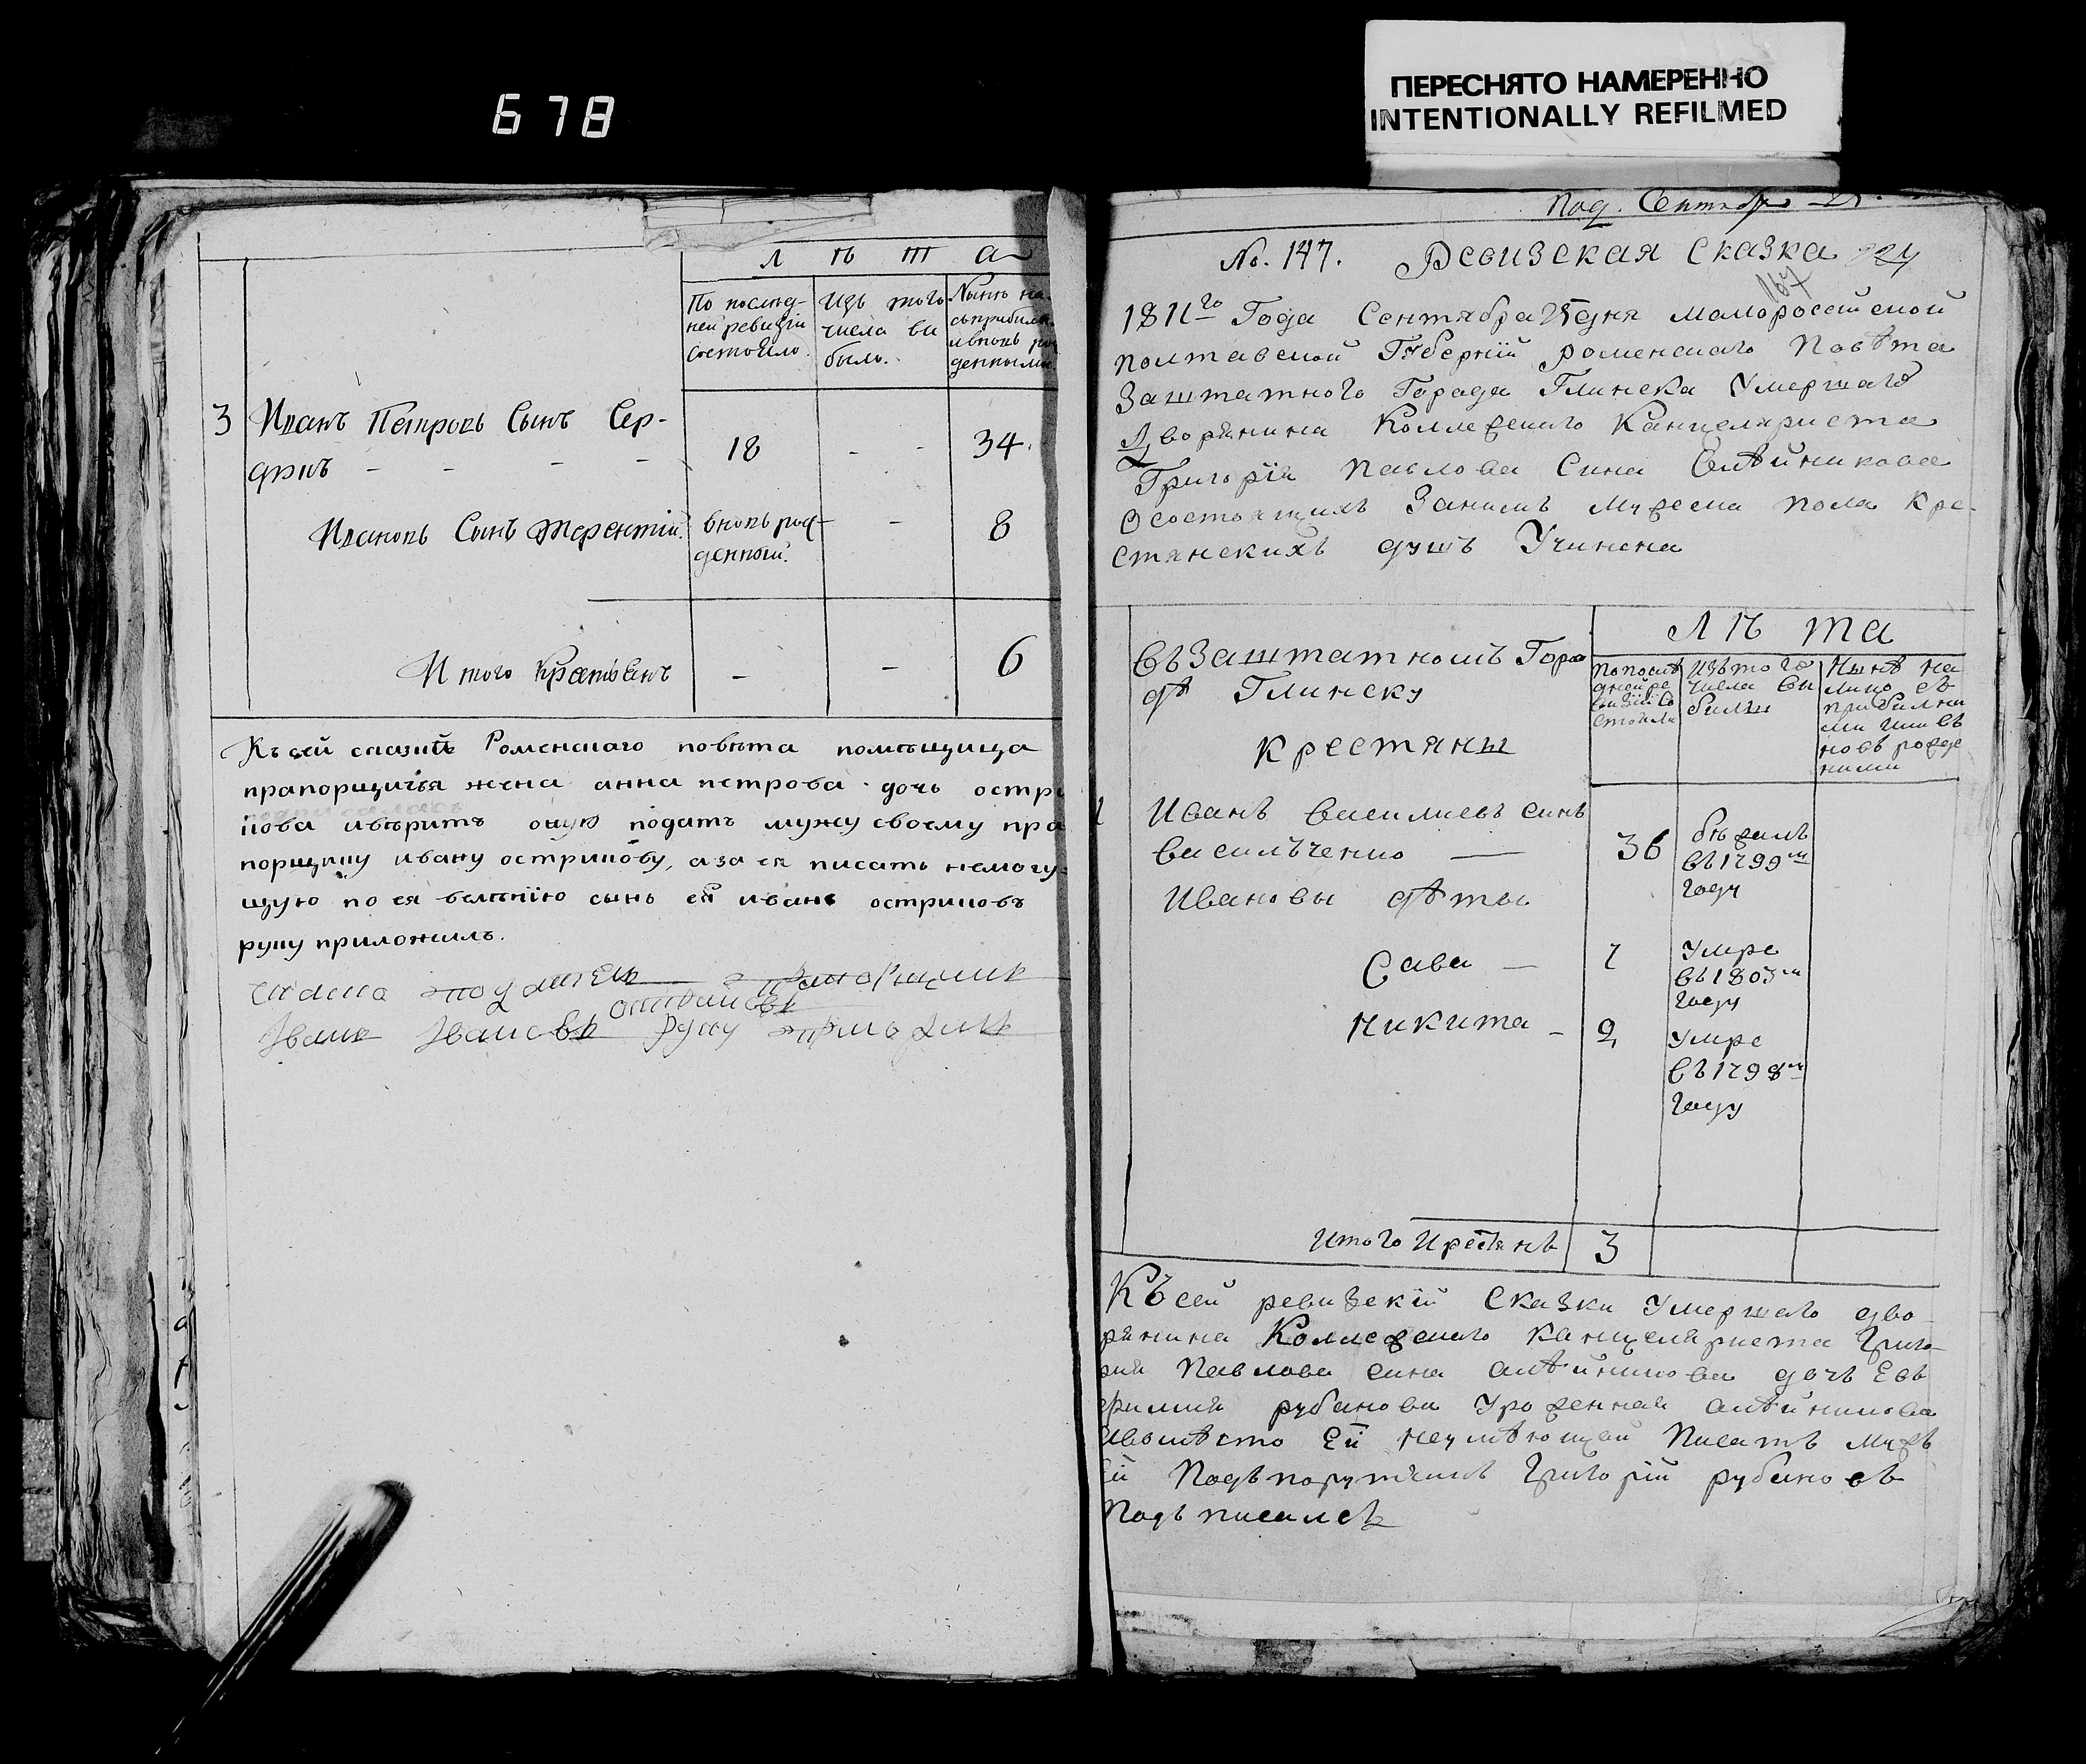 678
ПЕРЕСНЯТО НАМЕРЕННО
INTENTIONALLY REFILMED
Л ѣ т а
По послѣд-
ней ревизіи
состояло.
Изъ того
числа вы
было.
Нынѣ на
съ прибыл
и вновь ро
денными
3 Иванъ Петровъ Сынъ Сер-
дюкъ - - - - 18 - - 34.
Ивановъ Сынъ Терентій. вновь рож-
денный. - 8
Итого Крестьянъ - - 6
Къ сей сказкѣ Роменскаго повѣта помѣщица
прапорщичья жена анна петрова дочь остря
нова ивѣритъ оную подать мужу своему пра
порщику ивану острянову, а за ея писать немогу-
щую по ея велѣнію сынъ ей иванъ остряновъ
руку приложилъ.
Иванъ Ивановъ руку приложилъ
Под. Сентября 21.
No. 147. Ревизская Сказка
167
1811го Года Сентября дня малоросейской
полтавской Губерніи роменскаго Повѣта
Заштатного Города Глинска Умершаго
Дворянина Коллежскаго Канцеляриста
Григорія Павлова Сина Олѣйникова
О состоящихъ Занимъ мужеска пола кре-
стянскихъ душъ Учинена
Въ Заштатномъ Горо
дѣ Глинску
Крестяны
Л ѣ та
По послѣ
дней ре
визіи со
стояли
Изъ того
числа ви
были
Нынѣ на
лицо съ
прибилы
ми и в
новь рожде
ними
1 Иванъ Василиевъ синъ
Василъченко — 36 бѣжалъ
въ 1799м
году
Ивановы дѣты
Сава — 7 Умре
въ 1803м
году
Никита - 2 Умре
въ 1798м
году
Итого Крестянъ 3
Къ сей ревизскій Сказки Умершаго дво
рянина Коллежскаго канцеляриста Григо-
рия Павлова сина олѣйникова дочъ Евъ
фимия рубанова Уроженная олѣйникова
Ивомѣсто Ей неумѣющей Писать мужъ
Ей Подъпоручикъ Григорій рубановъ
Подъписался